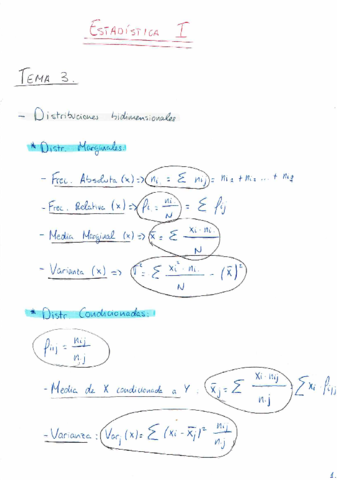 ESTADÍSTICA I
TEMA 3.
- Distribuciones bidimensionales
* Distr. Marginales:
- Frec. Absoluta (x) => ni. = Σ nij = ni1 + ni2 ... + nij
- Frec. Relativa (x) => fi. = ni./N = Σ fij
- Media Marginal (x) => x̄ = Σ xi·ni./N
- Varianta (x) => = Σ xi²·ni./N - (x̄)²
* Distr Condicionadas:
fi/j = nij/n.j
- Media de X condicionada a Y. x̄j = Σ xi·nij/n.j = Σ xi fi/j
- Varianza: Varj (x) = Σ (xi - x̄j)² nij/n.j
1.